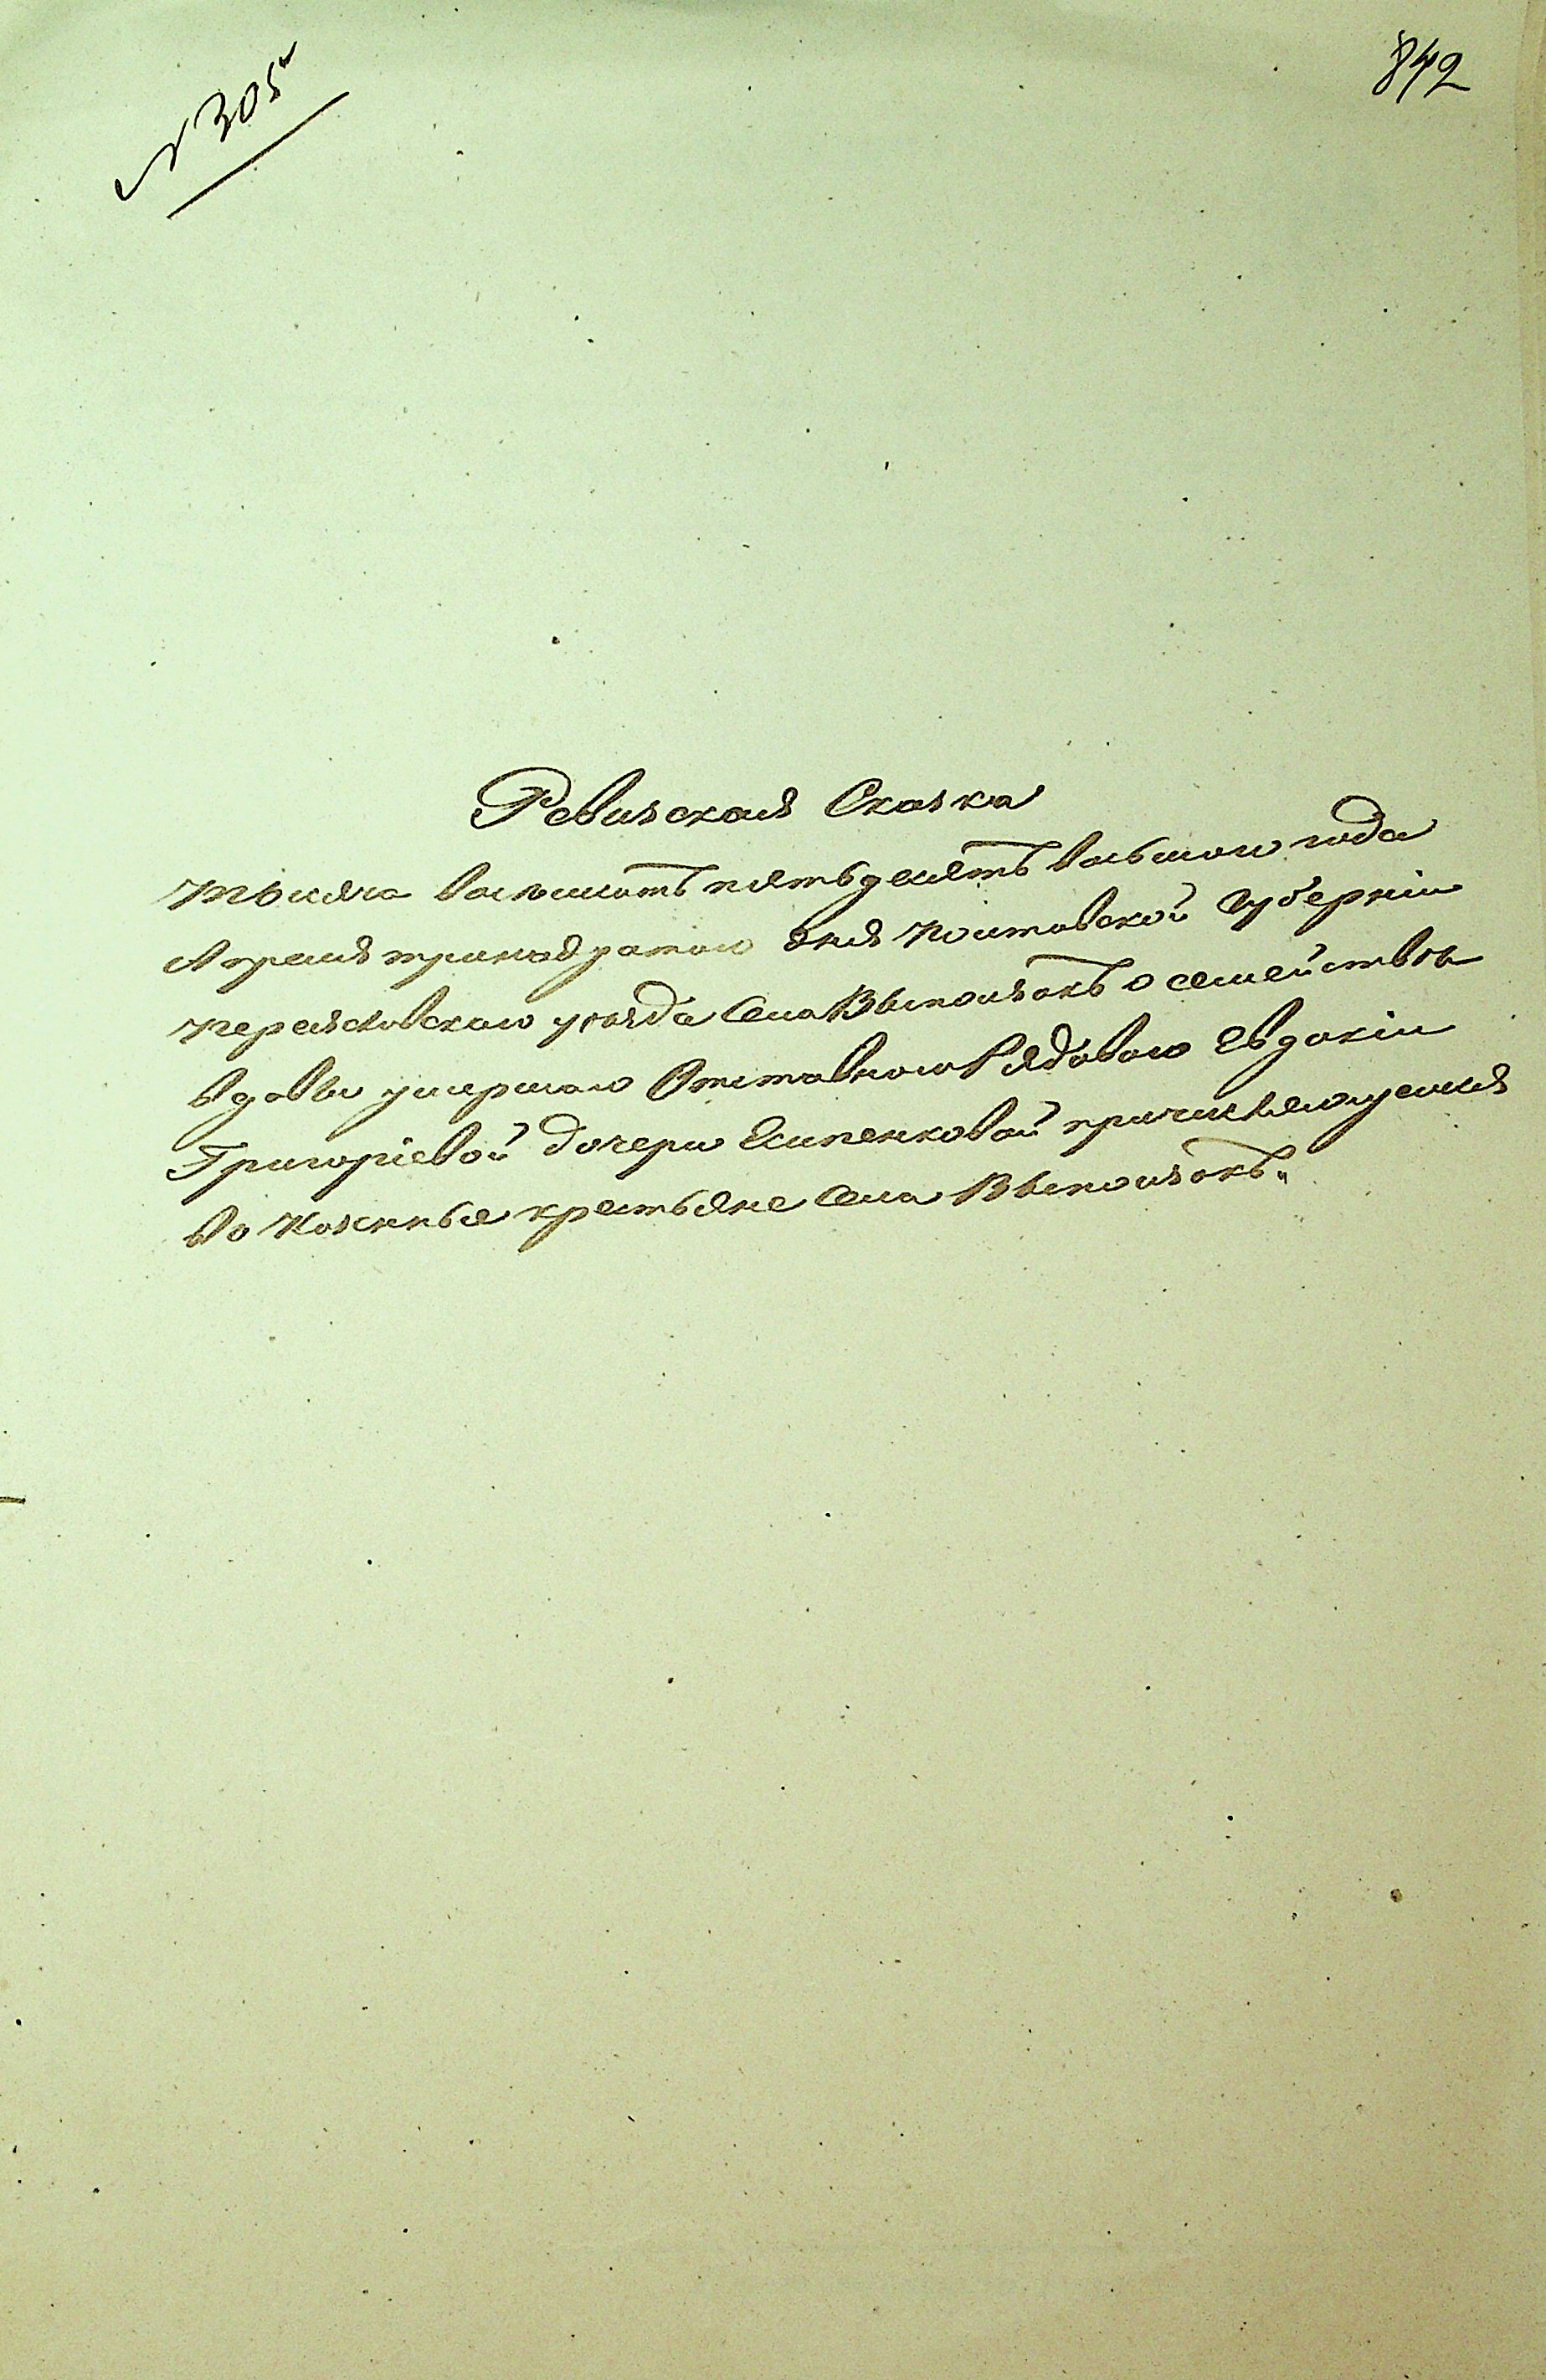 № 305
842
Ревизская Сказка
Тысяча восемьсотъ пятьдесятъ восьмого года
Апреля тринадцатого дня Полтавской Губерніи
Переясловского уѣзда Села Выползокъ о семействѣ
вдовы умершаго Отставного Рядового Евдокіи
Григоріевой дочери Есипенковой причисляющейся
въ Казенные крестьяне Села Выползокъ